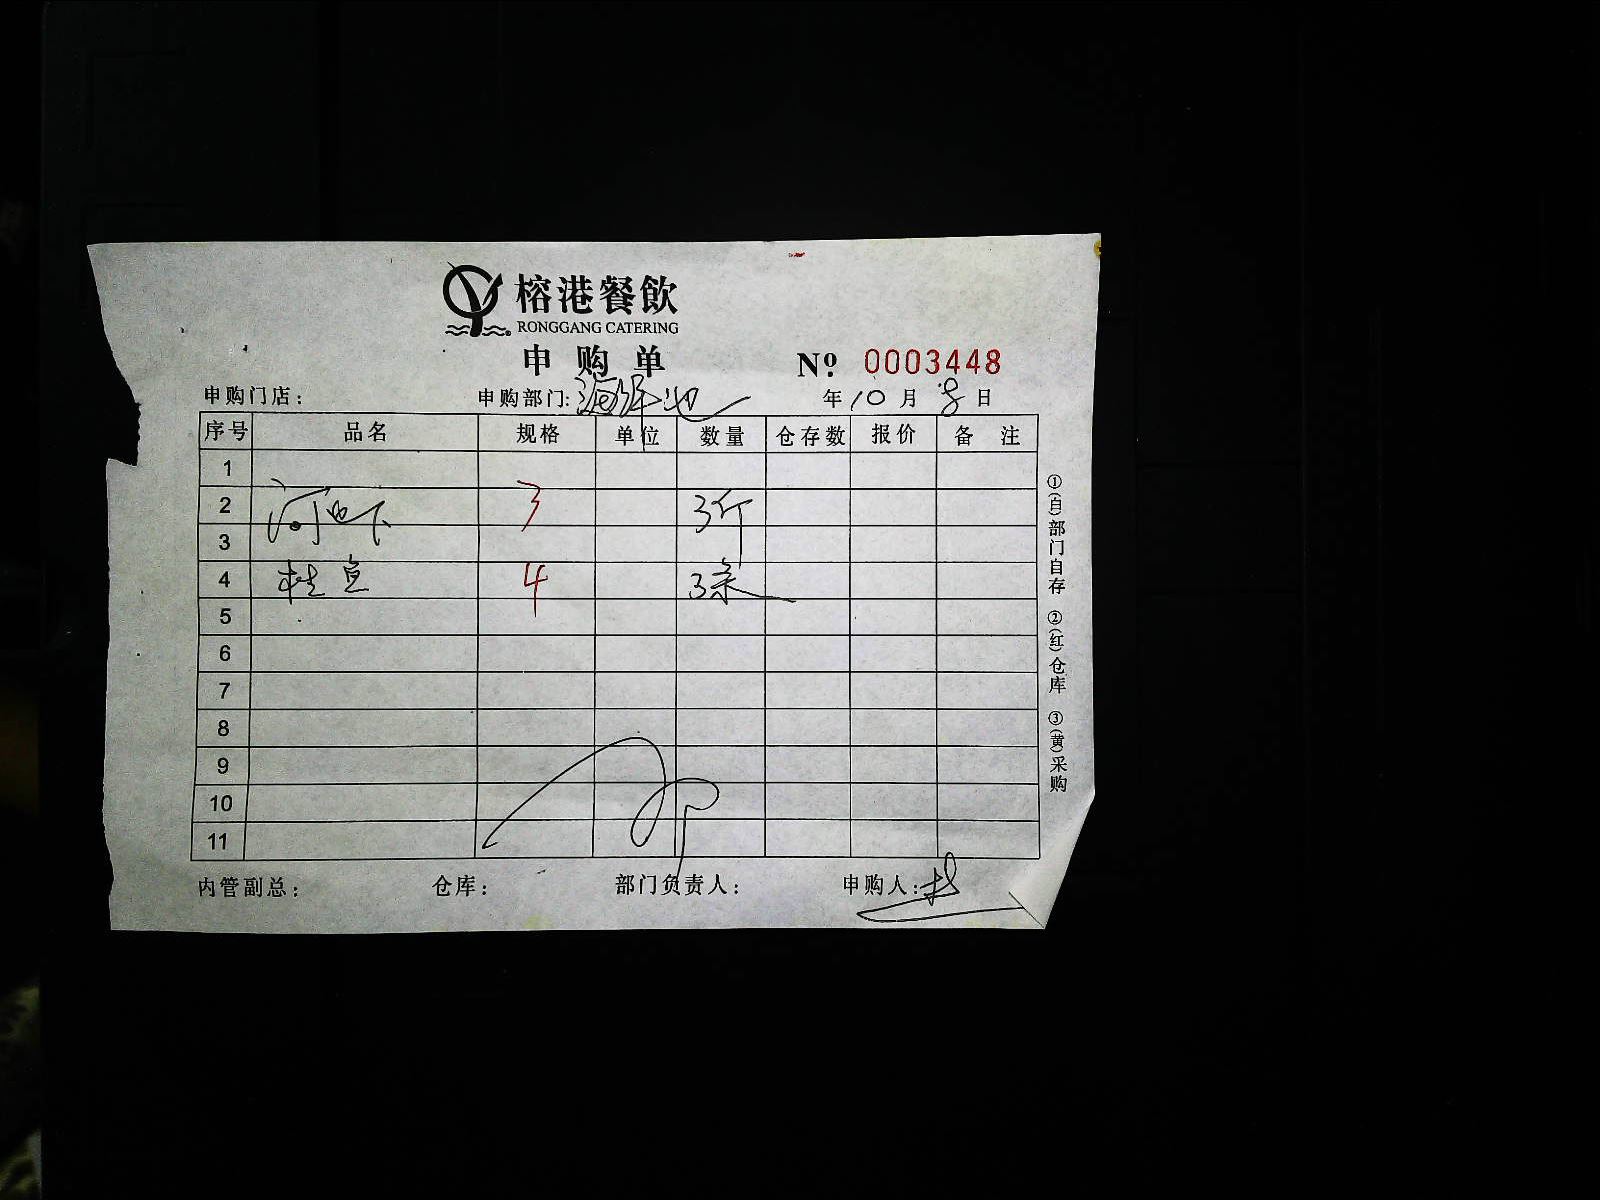 榕港餐飲
RONGGANG CATERING
申购单
Nº 0003448
申购门店： 申购部门:海鲜池 年10月8日
序号 品名 规格 单位 数量 仓存数 报价 备注
1
2 河虾 3 3斤
3
4 桂鱼 4 3条
5
6
7
8
9
10
11
内管副总： 仓库： 部门负责人： 申购人：
①(白)部门自存 ②(红)仓库 ③(黄)采购